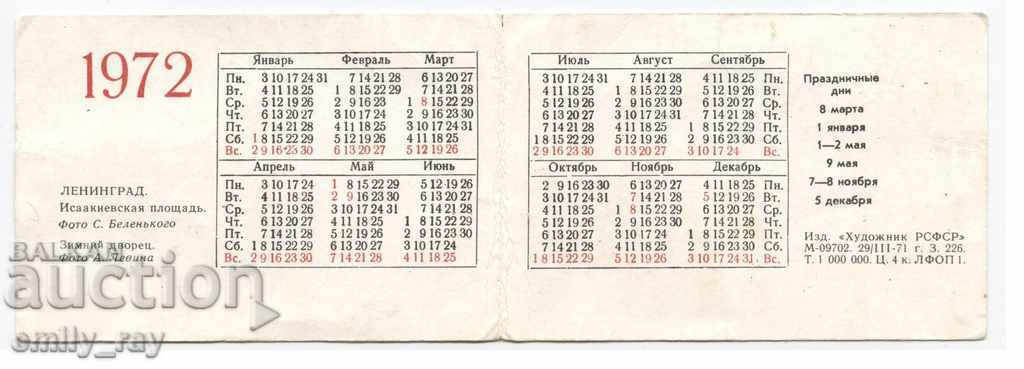 1972
Январь Февраль Март
Пн. 3 10 17 24 31 7 14 21 28 6 13 20 27
Вт. 4 11 18 25 1 8 15 22 29 7 14 21 28
Ср. 5 12 19 26 2 9 16 23 1 8 15 22 29
Чт. 6 13 20 27 3 10 17 24 2 9 16 23 30
Пт. 7 14 21 28 4 11 18 25 3 10 17 24 31
Сб. 1 8 15 22 29 5 12 19 26 4 11 18 25
Вс. 2 9 16 23 30 6 13 20 27 5 12 19 26
Апрель Май Июнь
Пн. 3 10 17 24 1 8 15 22 29 5 12 19 26
Вт. 4 11 18 25 2 9 16 23 30 6 13 20 27
Ср. 5 12 19 26 3 10 17 24 31 7 14 21 28
Чт. 6 13 20 27 4 11 18 25 1 8 15 22 29
Пт. 7 14 21 28 5 12 19 26 2 9 16 23 30
Сб. 1 8 15 22 29 6 13 20 27 3 10 17 24
Вс. 2 9 16 23 30 7 14 21 28 4 11 18 25
ЛЕНИНГРАД.
Исаакиевская площадь.
Фото С. Беленького
Зимний дворец.
Фото А. Левина
Июль Август Сентябрь
3 10 17 24 31 7 14 21 28 4 11 18 25 Пн.
4 11 18 25 1 8 15 22 29 5 12 19 26 Вт.
5 12 19 26 2 9 16 23 30 6 13 20 27 Ср.
6 13 20 27 3 10 17 24 31 7 14 21 28 Чт.
7 14 21 28 4 11 18 25 1 8 15 22 29 Пт.
1 8 15 22 29 5 12 19 26 2 9 16 23 30 Сб.
2 9 16 23 30 6 13 20 27 3 10 17 24 Вс.
Октябрь Ноябрь Декабрь
2 9 16 23 30 6 13 20 27 4 11 18 25 Пн.
3 10 17 24 31 7 14 21 28 5 12 19 26 Вт.
4 11 18 25 1 8 15 22 29 6 13 20 27 Ср.
5 12 19 26 2 9 16 23 30 7 14 21 28 Чт.
6 13 20 27 3 10 17 24 1 8 15 22 29 Пт.
7 14 21 28 4 11 18 25 2 9 16 23 30 Сб.
1 8 15 22 29 5 12 19 26 3 10 17 24 31 Вс.
Праздничные
дни
8 марта
1 января
1—2 мая
9 мая
7—8 ноября
5 декабря
Изд. «Художник РСФСР»
М-09702. 29/III-71 г. З. 226.
Т. 1 000 000. Ц. 4 к. ЛФОП 1.
BALKAN
auction
emily_ray